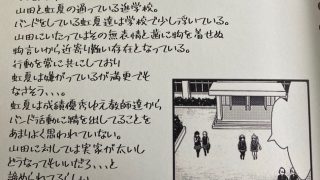 山田と虹夏の通っている進学校。
バンドをしている虹夏達は学校で少し浮いている。
山田にいたってはその無表情と歯に狗を着せぬ
狗言いから近寄り難い存在となっている。
行動を常に共にしており
虹夏は嫌がっているが満更でも
なさそう、、、。
虹夏は成績優秀ゆえ教師達から
バンド活動に精を出してることを
あまりよく思われていない。
山田に対しては実家が太いし
どうなってもいいだろ、、、と
諦められてるらしい